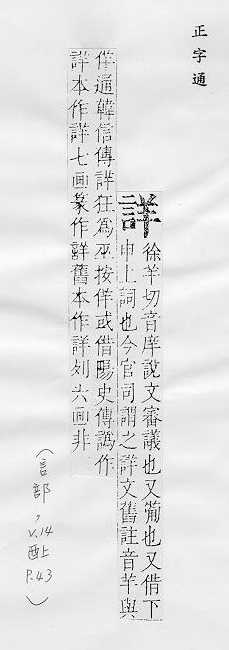 正字通
詳
徐羊切音庠說文審議也又葡也又借下
申上詞也今官司謂之詳文舊註音羊與
佯通韓信傳詳狂為巫按佯或借陽史傳譌作
詳本作詳七画篆作詳舊本作詳列六画非
（言部，
V.14
酉上
P.43）